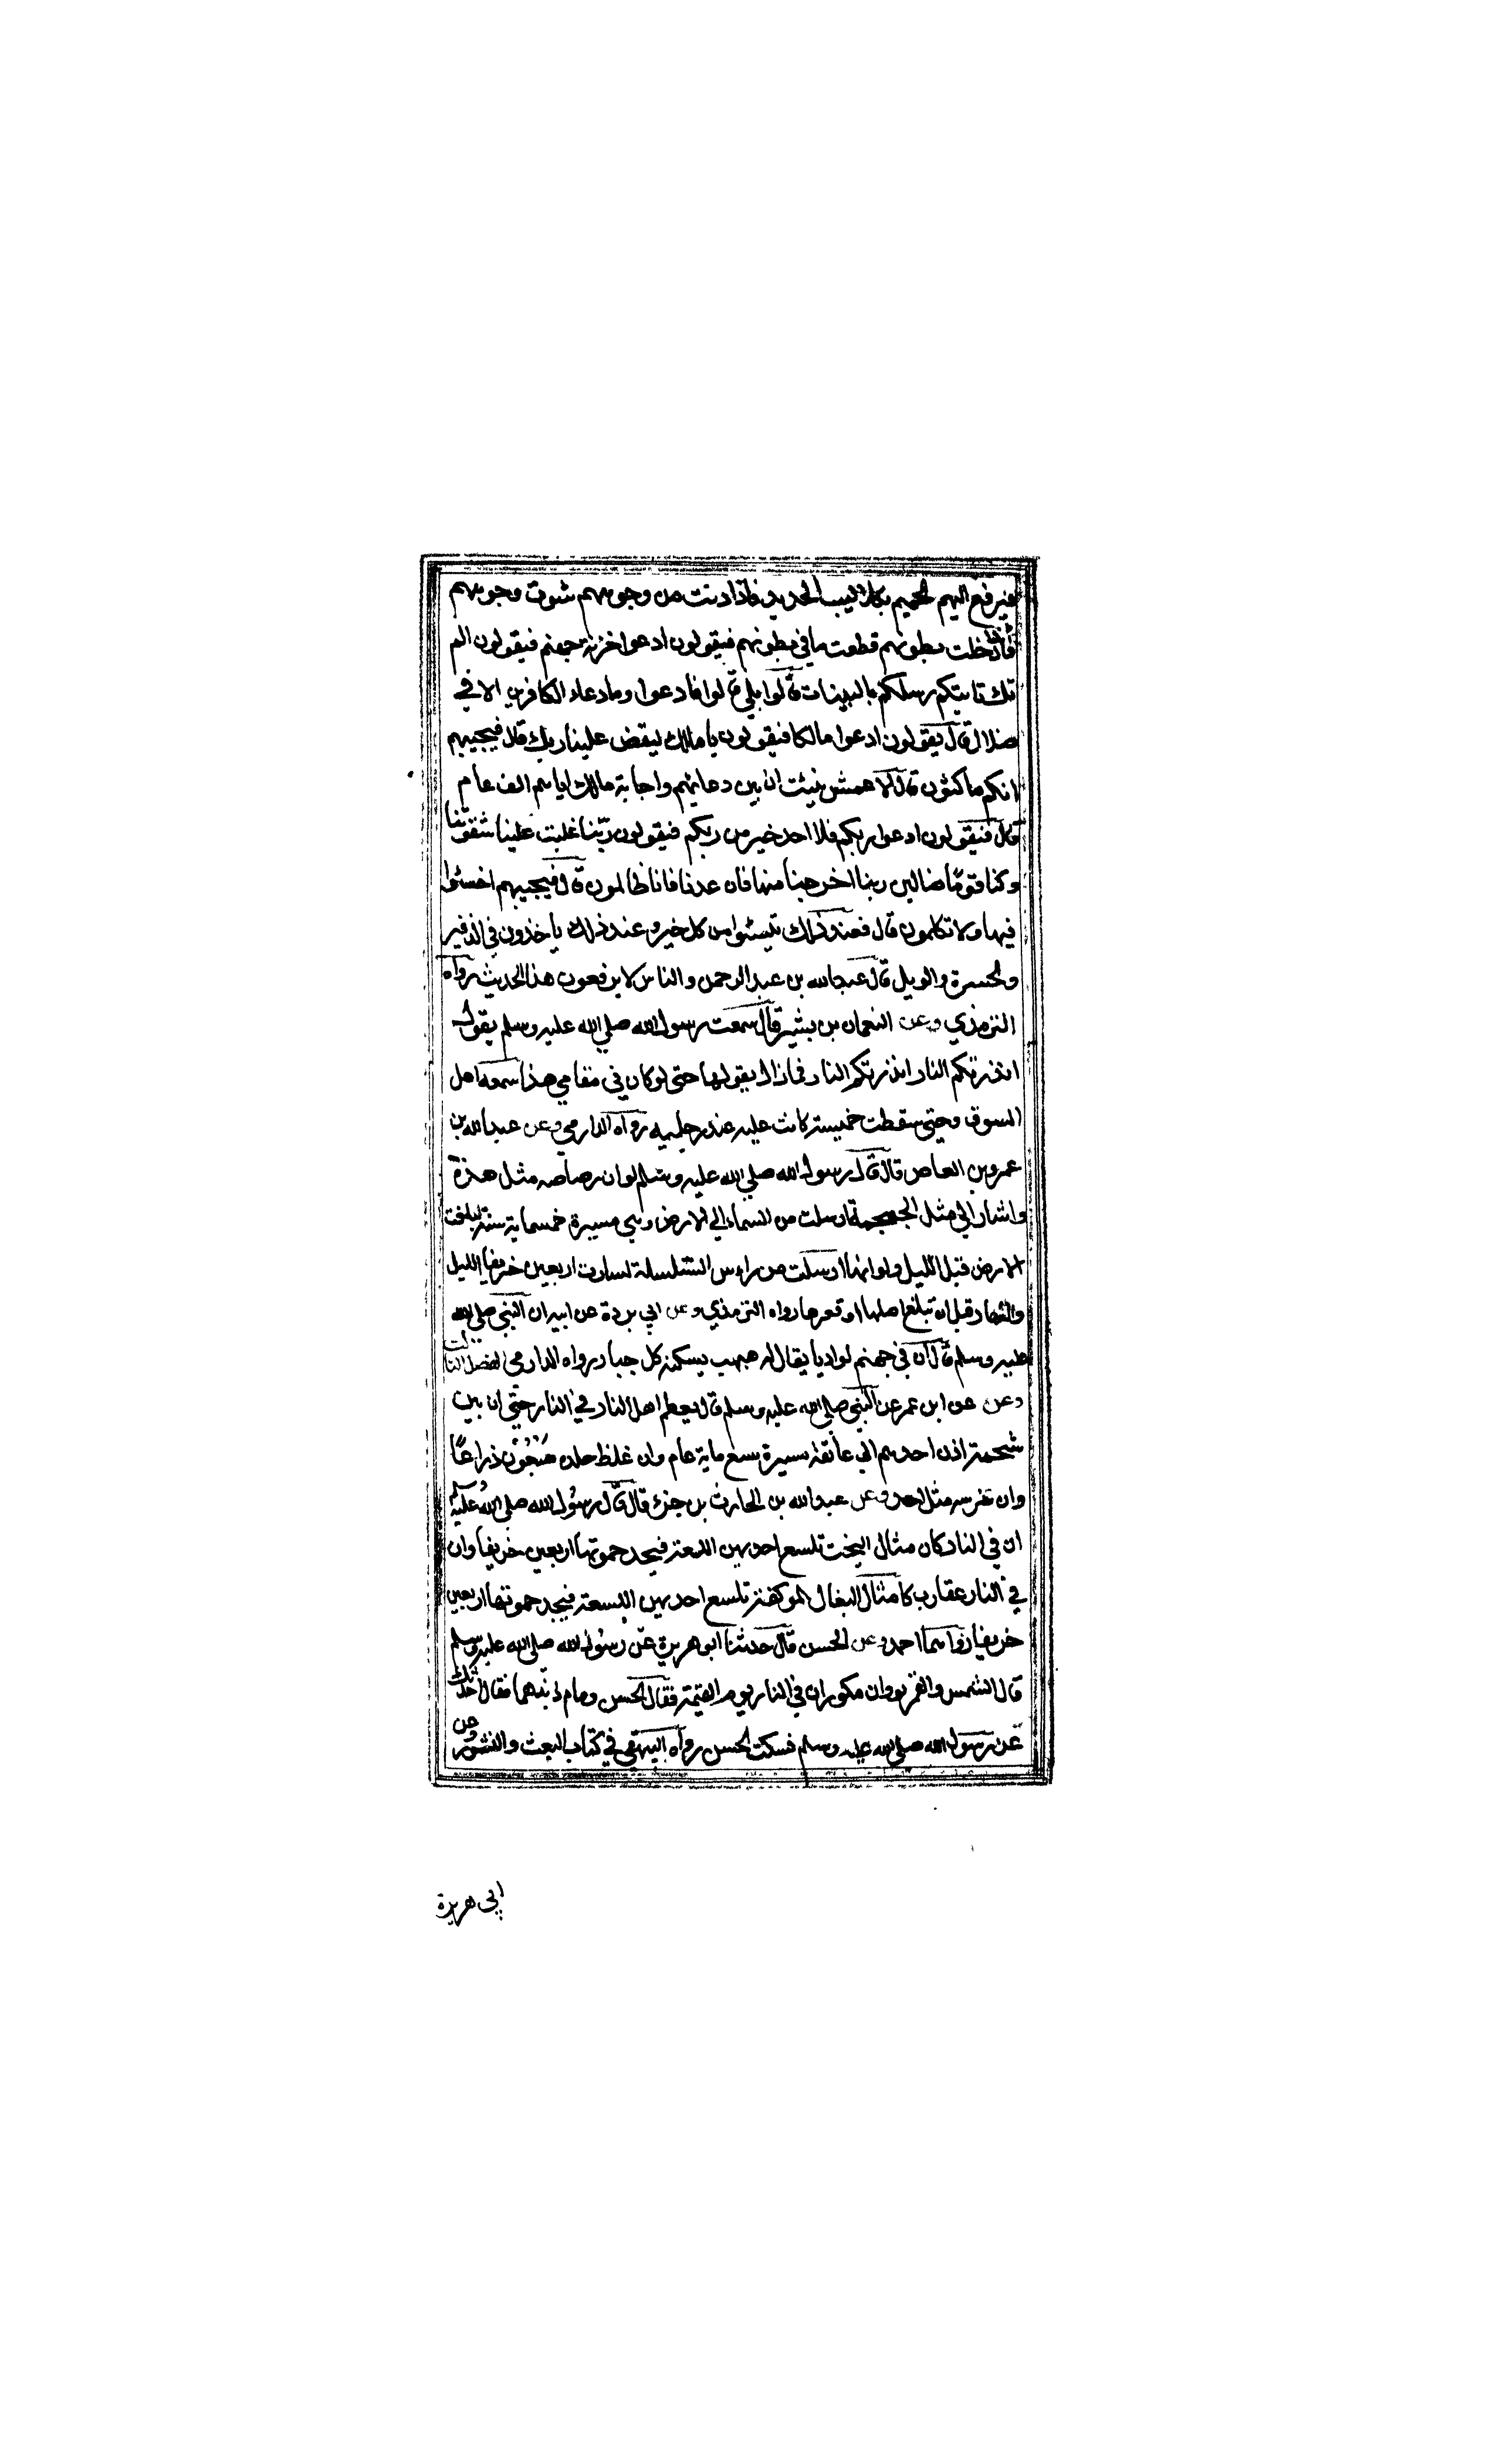 فيرفع اليهم الحميم بكلاليب الحديد فاذا دنت من وجوههم شوت وجوههم
فاذا دخلت بطونهم قطعت ما في بطونهم فيقولون ادعوا خزنة جهنم فيقولون الم
تك تاتيكم رسلكم بالبينات قالوا بلي قالوا فادعوا وما دعاء الكافرين الا في
ضلال قال فيقولون ادعوا مالكا فيقولون يا مالك ليقض علينا ربك قال فيجيبهم
انكم ماكثون قال الاعمش نبئت ان بين دعائهم واجابة مالك اياهم الف عام
قال فيقولون ادعوا ربكم فلا احد خير من ربكم فيقولون ربّنا غلبت علينا شقوتنا
وكنا قومًا ضالين ربنا اخرجنا منها فان عدنا فانا ظالمون قال فيجيبهم اخسئوا
فيها ولا تكلمون قال فعند ذلك يئسوا من كل خير وعند ذلك ياخذون في الزفير
والحسرة والويل قال عبد الله بن عبد الرحمن والناس لا يرفعون هذا الحديث رواه
الترمذي وعن النعمان بن بشير قال سمعت رسول الله صلي الله عليه وسلم يقول
انذرتكم النار انذرتكم النار فما زال يقولها حتي لو كان في مقامي هذا سمعه اهل
السوق وحتي سقطت خميصة كانت عليه عند رجليه رواه الدارمي وعن عبد الله بن
عمرو بن العاص قال قال رسول الله صلي الله عليه وسلم لو ان رصاصه مثل هذه
واشار الي مثل الجمجمة ارسلت من السماء الي الارض وهي مسيرة خمسماية سنة لبلغت
الارض قبل الليل ولو انها ارسلت من راس السلسلة لسارت اربعين خريفا الليل
والنهار قبل ان تبلغ اصلها او قعرها رواه الترمذي وعن ابي بردة عن ابيه ان النبي صلي الله
عليه وسلم قال ان في جهنم لواديا يقال له هبهب يسكنه كل جبار رواه الدارمي الفصل الثالث
وعن عن ابن عمر عن النبي صلي الله عليه وسلم قال يعظم اهل النار في النار حتي ان بين
شحمة اذن احدهم الي عاتقه مسيرة سبع ماية عام وان غلظ جلده سبعون ذراعًا
وان ضرسه مثل احد وعن عبد الله بن الحارث بن جزء قال قال رسول الله صلي الله عليه وسلم
ان في النار كان مثال البخت تلسع احديهن اللسعة فيجد حموتها اربعين خريفا وان
في النار عقارب كامثال البغال الموكفة تلسع احديهن اللسعة فيجد حموتها اربعين
خريفا رواهما احمد وعن الحسن قال حدثنا ابو هريرة عن رسول الله صلي الله عليه وسلم
قال الشمس والقمر ثوران مكوران في النار يوم القيمة فقال الحسن وما ذنبهما فقال احدثك
عن رسول الله صلي الله عليه وسلم فسكت الحسن رواه البيهقي في كتاب البعث والنشور وعن
ابي هريرة